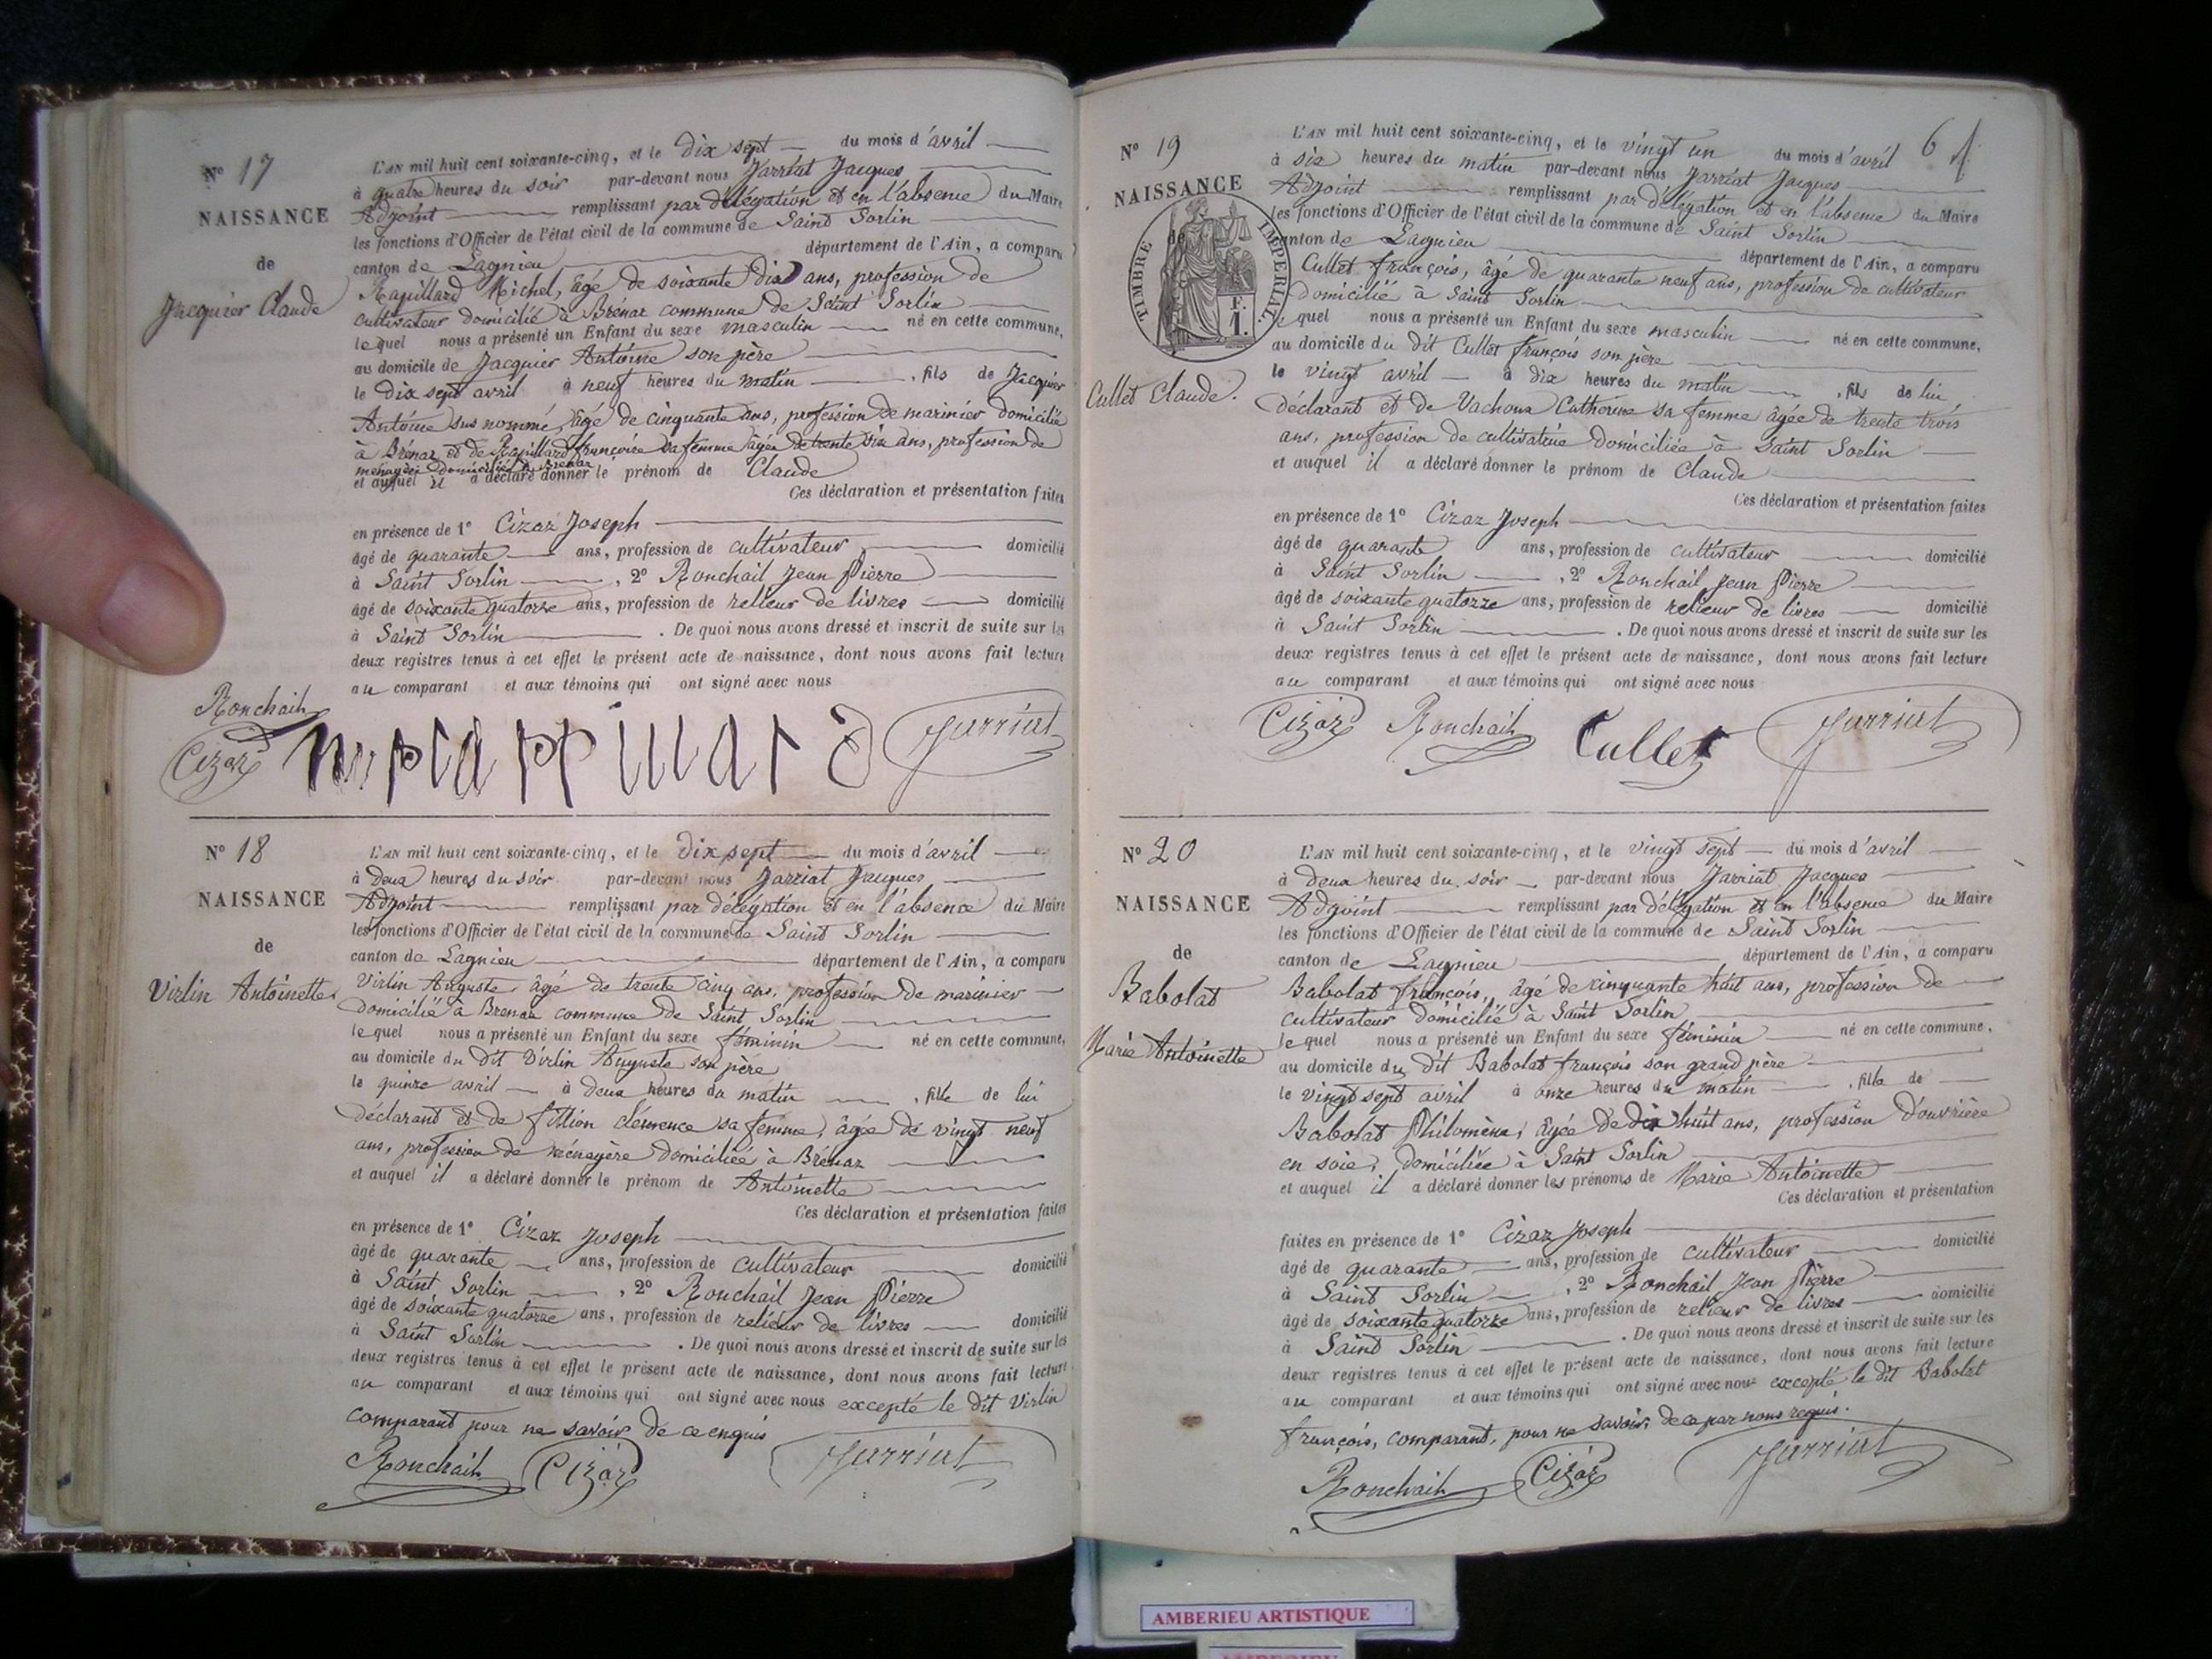 N° 17
NAISSANCE
de
Jacquier Claude
L'AN mil huit cent soixante-cinq, et le dix sept du mois d'avril
à quatre heures du soir par-devant nous Jarriat Jacques
Adjoint remplissant par délégation et en l'absence du Maire
les fonctions d'Officier de l'état civil de la commune de Saint Sorlin
canton de Lagnieu département de l'Ain, a comparu
Rapillard Michel, âgé de soixante dix ans, profession de
cultivateur domicilié à Brénaz commune de Saint Sorlin
lequel nous a présenté un Enfant du sexe masculin né en cette commune,
au domicile de Jacquier Antoine son père
le dix sept avril à neuf heures du matin, fils de Jacquier
Antoine sus nommé, âgé de cinquante ans, profession de marinier domicilié
à Brénaz et de Rapillard françoise sa femme âgée de trente six ans, profession de
ménagère domiciliée à Brénaz
et auquel il a déclaré donner le prénom de Claude
Ces déclaration et présentation faites
en présence de 1° Cizaz Joseph
âgé de quarante ans, profession de cultivateur domicilié
à Saint Sorlin, 2° Ronchail Jean Pierre
âgé de soixante quatorze ans, profession de relieur de livres domicilié
à Saint Sorlin. De quoi nous avons dressé et inscrit de suite sur les
deux registres tenus à cet effet le présent acte de naissance, dont nous avons fait lecture
au comparant et aux témoins qui ont signé avec nous
Ronchail
Cizaz
Jarriat
N° 18
NAISSANCE
de
Virlin Antoinette
L'AN mil huit cent soixante-cinq, et le dix sept du mois d'avril
à deux heures du soir par-devant nous Jarriat Jacques
Adjoint remplissant par délégation et en l'absence du Maire
les fonctions d'Officier de l'état civil de la commune de Saint Sorlin
canton de Lagnieu département de l'Ain, a comparu
Virlin Auguste, âgé de trente cinq ans, profession de marinier
domicilié à Brenaz commune de Saint Sorlin
lequel nous a présenté un Enfant du sexe féminin né en cette commune,
au domicile du dit Virlin Auguste son père
le quinze avril à deux heures du matin, fille de lui
déclarant et de fittion Clémence sa femme, âgée de vingt neuf
ans, profession de ménagère domiciliée à Brénaz
et auquel il a déclaré donner le prénom de Antoinette
Ces déclaration et présentation faites
en présence de 1° Cizaz Joseph
âgé de quarante ans, profession de cultivateur domicilié
à Saint Sorlin, 2° Ronchail Jean Pierre
âgé de soixante quatorze ans, profession de relieur de livres domicilié
à Saint Sorlin. De quoi nous avons dressé et inscrit de suite sur les
deux registres tenus à cet effet le présent acte de naissance, dont nous avons fait lecture
au comparant et aux témoins qui ont signé avec nous excepté le dit Virlin
comparant pour ne savoir de ce enquis
Ronchail Cizaz Jarriat
6
N° 19
NAISSANCE
de
TIMBRE IMPERIAL
F.
1.
Cullet Claude.
L'AN mil huit cent soixante-cinq, et le vingt un du mois d'avril
à six heures du matin par-devant nous Jarriat Jacques
Adjoint remplissant par délégation et en l'absence du Maire
les fonctions d'Officier de l'état civil de la commune de Saint Sorlin
canton de Lagnieu département de l'Ain, a comparu
Cullet françois, âgé de quarante neuf ans, profession de cultivateur
domicilié à Saint Sorlin
lequel nous a présenté un Enfant du sexe masculin né en cette commune,
au domicile du dit Cullet françois son père
le vingt avril à dix heures du matin, fils de lui
déclarant et de Vachoux Catherine sa femme âgée de trente trois
ans, profession de cultivatrice domiciliée à Saint Sorlin
et auquel il a déclaré donner le prénom de Claude
Ces déclaration et présentation faites
en présence de 1° Cizaz Joseph
âgé de quarante ans, profession de cultivateur domicilié
à Saint Sorlin, 2° Ronchail Jean Pierre
âgé de soixante quatorze ans, profession de relieur de livres domicilié
à Saint Sorlin. De quoi nous avons dressé et inscrit de suite sur les
deux registres tenus à cet effet le présent acte de naissance, dont nous avons fait lecture
au comparant et aux témoins qui ont signé avec nous
Cizaz Ronchail Cullet Jarriat
N° 20
NAISSANCE
de
Babolat
Marie Antoinette
L'AN mil huit cent soixante-cinq, et le vingt sept du mois d'avril
à deux heures du soir par-devant nous Jarriat Jacques
Adjoint remplissant par délégation et en l'absence du Maire
les fonctions d'Officier de l'état civil de la commune de Saint Sorlin
canton de Lagnieu département de l'Ain, a comparu
Babolat françois, âgé de cinquante huit ans, profession de
cultivateur domicilié à Saint Sorlin
lequel nous a présenté un Enfant du sexe féminin né en cette commune,
au domicile du dit Babolat françois son grand père
le vingt sept avril à onze heures du matin, fille de
Babolat Philomène, âgée de dix huit ans, profession d'ouvrière
en soie, domiciliée à Saint Sorlin
et auquel il a déclaré donner les prénoms de Marie Antoinette
Ces déclaration et présentation
faites en présence de 1° Cizaz Joseph
âgé de quarante ans, profession de cultivateur domicilié
à Saint Sorlin, 2° Ronchail Jean Pierre
âgé de soixante quatorze ans, profession de relieur de livres domicilié
à Saint Sorlin. De quoi nous avons dressé et inscrit de suite sur les
deux registres tenus à cet effet le présent acte de naissance, dont nous avons fait lecture
au comparant et aux témoins qui ont signé avec nous excepté le dit Babolat
françois, comparant, pour ne savoir, de ce par nous requis.
Ronchail Cizaz Jarriat
AMBERIEU ARTISTIQUE
AMBERIEU